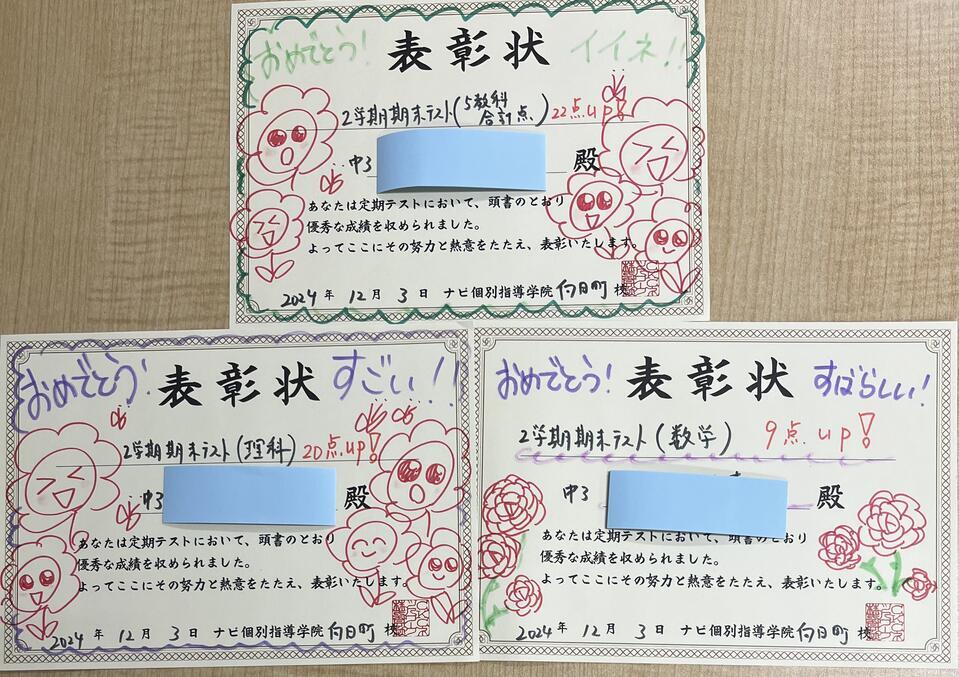 おめでとう! 表彰状 イイネ!!
2学期期末テスト(5教科合計点) 22点up!
中3 殿
あなたは定期テストにおいて、頭書のとおり
優秀な成績を収められました。
よってここにその努力と熱意をたたえ、表彰いたします。
2024年 12月 3日 ナビ個別指導学院 向日町 校
おめでとう! 表彰状 すごい!!
2学期期末テスト(理科) 20点up!
中3 殿
あなたは定期テストにおいて、頭書のとおり
優秀な成績を収められました。
よってここにその努力と熱意をたたえ、表彰いたします。
2024年 12月 3日 ナビ個別指導学院 向日町 校
おめでとう! 表彰状 すばらしい!
2学期期末テスト(数学) 9点up!
中3 殿
あなたは定期テストにおいて、頭書のとおり
優秀な成績を収められました。
よってここにその努力と熱意をたたえ、表彰いたします。
2024年 12月 3日 ナビ個別指導学院 向日町 校